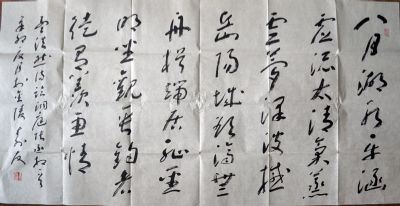 八月湖水平涵
虛混太清氣蒸
雲夢澤波撼
岳陽城欲濟無
舟楫端居恥聖
明坐觀垂釣者
徒有羨魚情
孟浩然詩洞庭